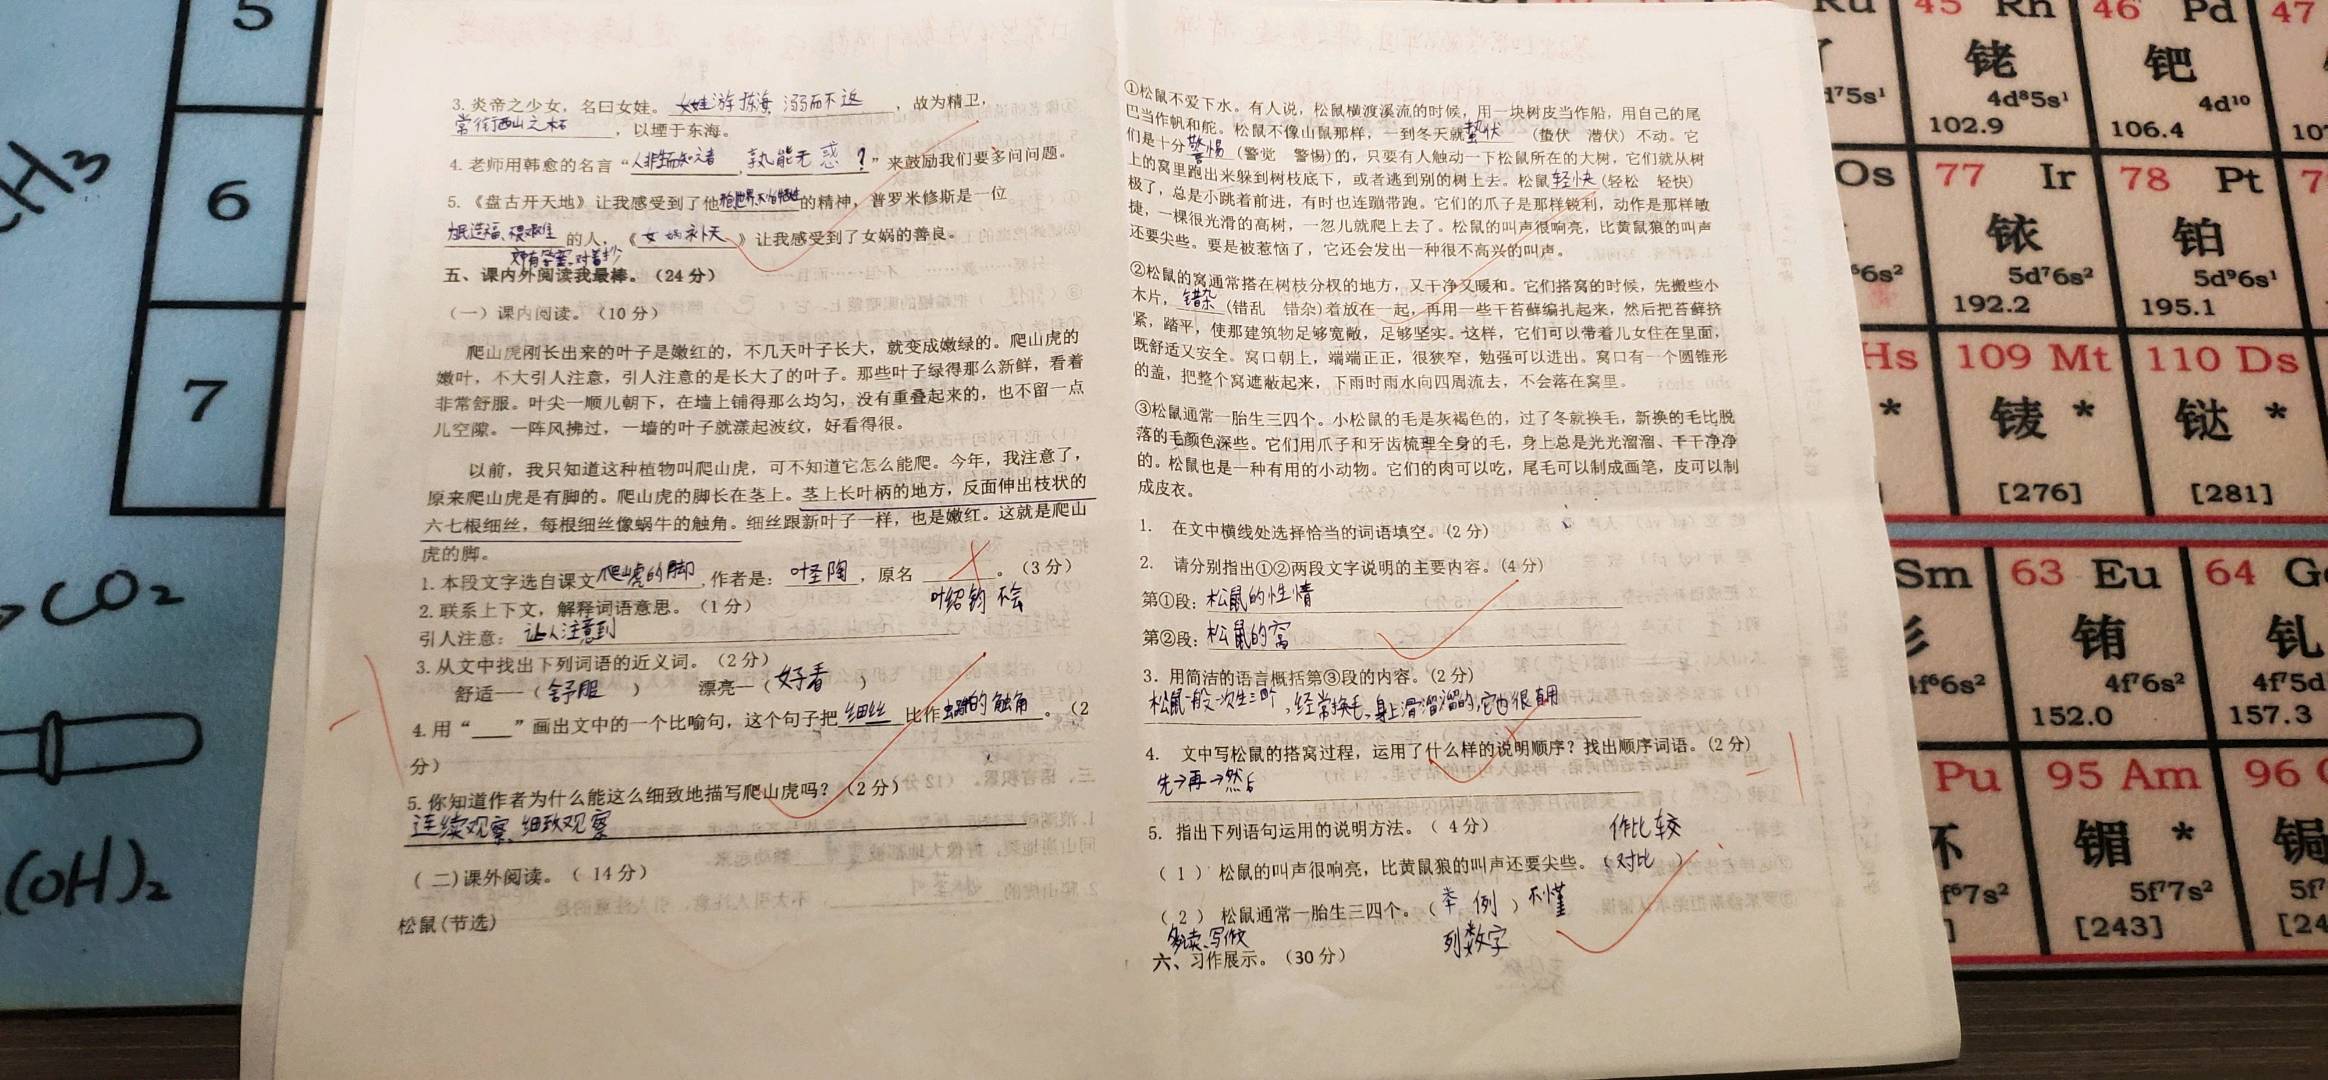 3. 炎帝之少女，名曰女娃。女娃游于东海，溺而不返，故为精卫，
常衔西山之木石，以堙于东海。
4. 老师用韩愈的名言“人非生而知之者，孰能无惑？”来鼓励我们要多问问题。
5.《盘古开天地》让我感受到了他的精神，普罗米修斯是一位
为民造福、不畏艰难的人，《女娲补天》让我感受到了女娲的善良。
五、课内外阅读我最棒。（24分）
（一）课内阅读。（10分）
爬山虎刚长出来的叶子是嫩红的，不几天叶子长大，就变成嫩绿的。爬山虎的
嫩叶，不大引人注意，引人注意的是长大了的叶子。那些叶子绿得那么新鲜，看着
非常舒服。叶尖一顺儿朝下，在墙上铺得那么均匀，没有重叠起来的，也不留一点
儿空隙。一阵风拂过，一墙的叶子就漾起波纹，好看得很。
以前，我只知道这种植物叫爬山虎，可不知道它怎么能爬。今年，我注意了，
原来爬山虎是有脚的。爬山虎的脚长在茎上。茎上长叶柄的地方，反面伸出枝状的
六七根细丝，每根细丝像蜗牛的触角。细丝跟新叶子一样，也是嫩红。这就是爬山
虎的脚。
1.本段文字选自课文爬山虎的脚，作者是：叶圣陶，原名____。（3分）
叶绍钧 不会
2.联系上下文，解释词语意思。（1分）
引人注意：让人注意到
3.从文中找出下列词语的近义词。（2分）
舒适—（舒服） 漂亮—（好看）
4.用“____”画出文中的一个比喻句，这个句子把细丝比作蜗牛的触角。（2
分）
5.你知道作者为什么能这么细致地描写爬山虎吗？（2分）
连续观察、细致观察
（二）课外阅读。（14分）
松鼠(节选)
①松鼠不爱下水。有人说，松鼠横渡溪流的时候，用一块树皮当作船，用自己的尾
巴当作帆和舵。松鼠不像山鼠那样，一到冬天就蛰伏（蛰伏 潜伏）不动。它
们是十分警惕（警觉 警惕)的，只要有人触动一下松鼠所在的大树，它们就从树
上的窝里跑出来躲到树枝底下，或者逃到别的树上去。松鼠轻快(轻松 轻快)
极了，总是小跳着前进，有时也连蹦带跑。它们的爪子是那样锐利，动作是那样敏
捷，一棵很光滑的高树，一忽儿就爬上去了。松鼠的叫声很响亮，比黄鼠狼的叫声
还要尖些。要是被惹恼了，它还会发出一种很不高兴的叫声。
②松鼠的窝通常搭在树枝分杈的地方，又干净又暖和。它们搭窝的时候，先搬些小
木片，错杂(错乱 错杂)着放在一起，再用一些干苔藓编扎起来，然后把苔藓挤
紧，踏平，使那建筑物足够宽敞，足够坚实。这样，它们可以带着儿女住在里面，
既舒适又安全。窝口朝上，端端正正，很狭窄，勉强可以进出。窝口有一个圆锥形
的盖，把整个窝遮蔽起来，下雨时雨水向四周流去，不会落在窝里。
③松鼠通常一胎生三四个。小松鼠的毛是灰褐色的，过了冬就换毛，新换的毛比脱
落的毛颜色深些。它们用爪子和牙齿梳理全身的毛，身上总是光光溜溜、干干净净
的。松鼠也是一种有用的小动物。它们的肉可以吃，尾毛可以制成画笔，皮可以制
成皮衣。
1. 在文中横线处选择恰当的词语填空。(2分)
2. 请分别指出①②两段文字说明的主要内容。(4分)
第①段：松鼠的性情
第②段：松鼠的窝
3. 用简洁的语言概括第③段的内容。(2分)
松鼠一般一次生三四个，经常换毛，身上滑溜溜的，它也很有用
4. 文中写松鼠的搭窝过程，运用了什么样的说明顺序？找出顺序词语。(2分)
先→再→然后
5. 指出下列语句运用的说明方法。（4分）
作比较
（1）松鼠的叫声很响亮，比黄鼠狼的叫声还要尖些。（对比）
（2）松鼠通常一胎生三四个。（举例）不懂
列数字
多读、写、做
六、习作展示。（30分）
5
6
7
CH3
CO2
(OH)2
Ru
45 Rh
铑
4d⁸5s¹
102.9
46 Pd
钯
4d¹⁰
106.4
47
Os
77 Ir
铱
5d⁷6s²
192.2
78 Pt
铂
5d⁹6s¹
195.1
Hs
109 Mt
鿏 *
[276]
110 Ds
鐽 *
[281]
Sm
63 Eu
铕
4f⁷6s²
152.0
64 G
钆
157.3
Pu
95 Am
镅 *
5f⁷7s²
[243]
96
锔